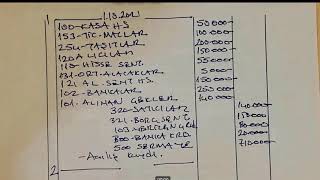 1.10.2011
100-KASA HS 50 000
153-TİC. MALLAR 100 000
254-TAŞITLAR 200 000
120 ALICILAR 150 000
110-HİSSE SENT. 55 000
131-ORT. ALACAKLAR 5 000
121 AL. SENT. HS 150 000
102-BANKALAR 250 000
101. ALINAN ÇEKLER 140 000
320-SATICILAR 140 000
321. BORÇ SENT. 150 000
300-BANKA KRD. 20 000
500 SERMAYE 710 000
2